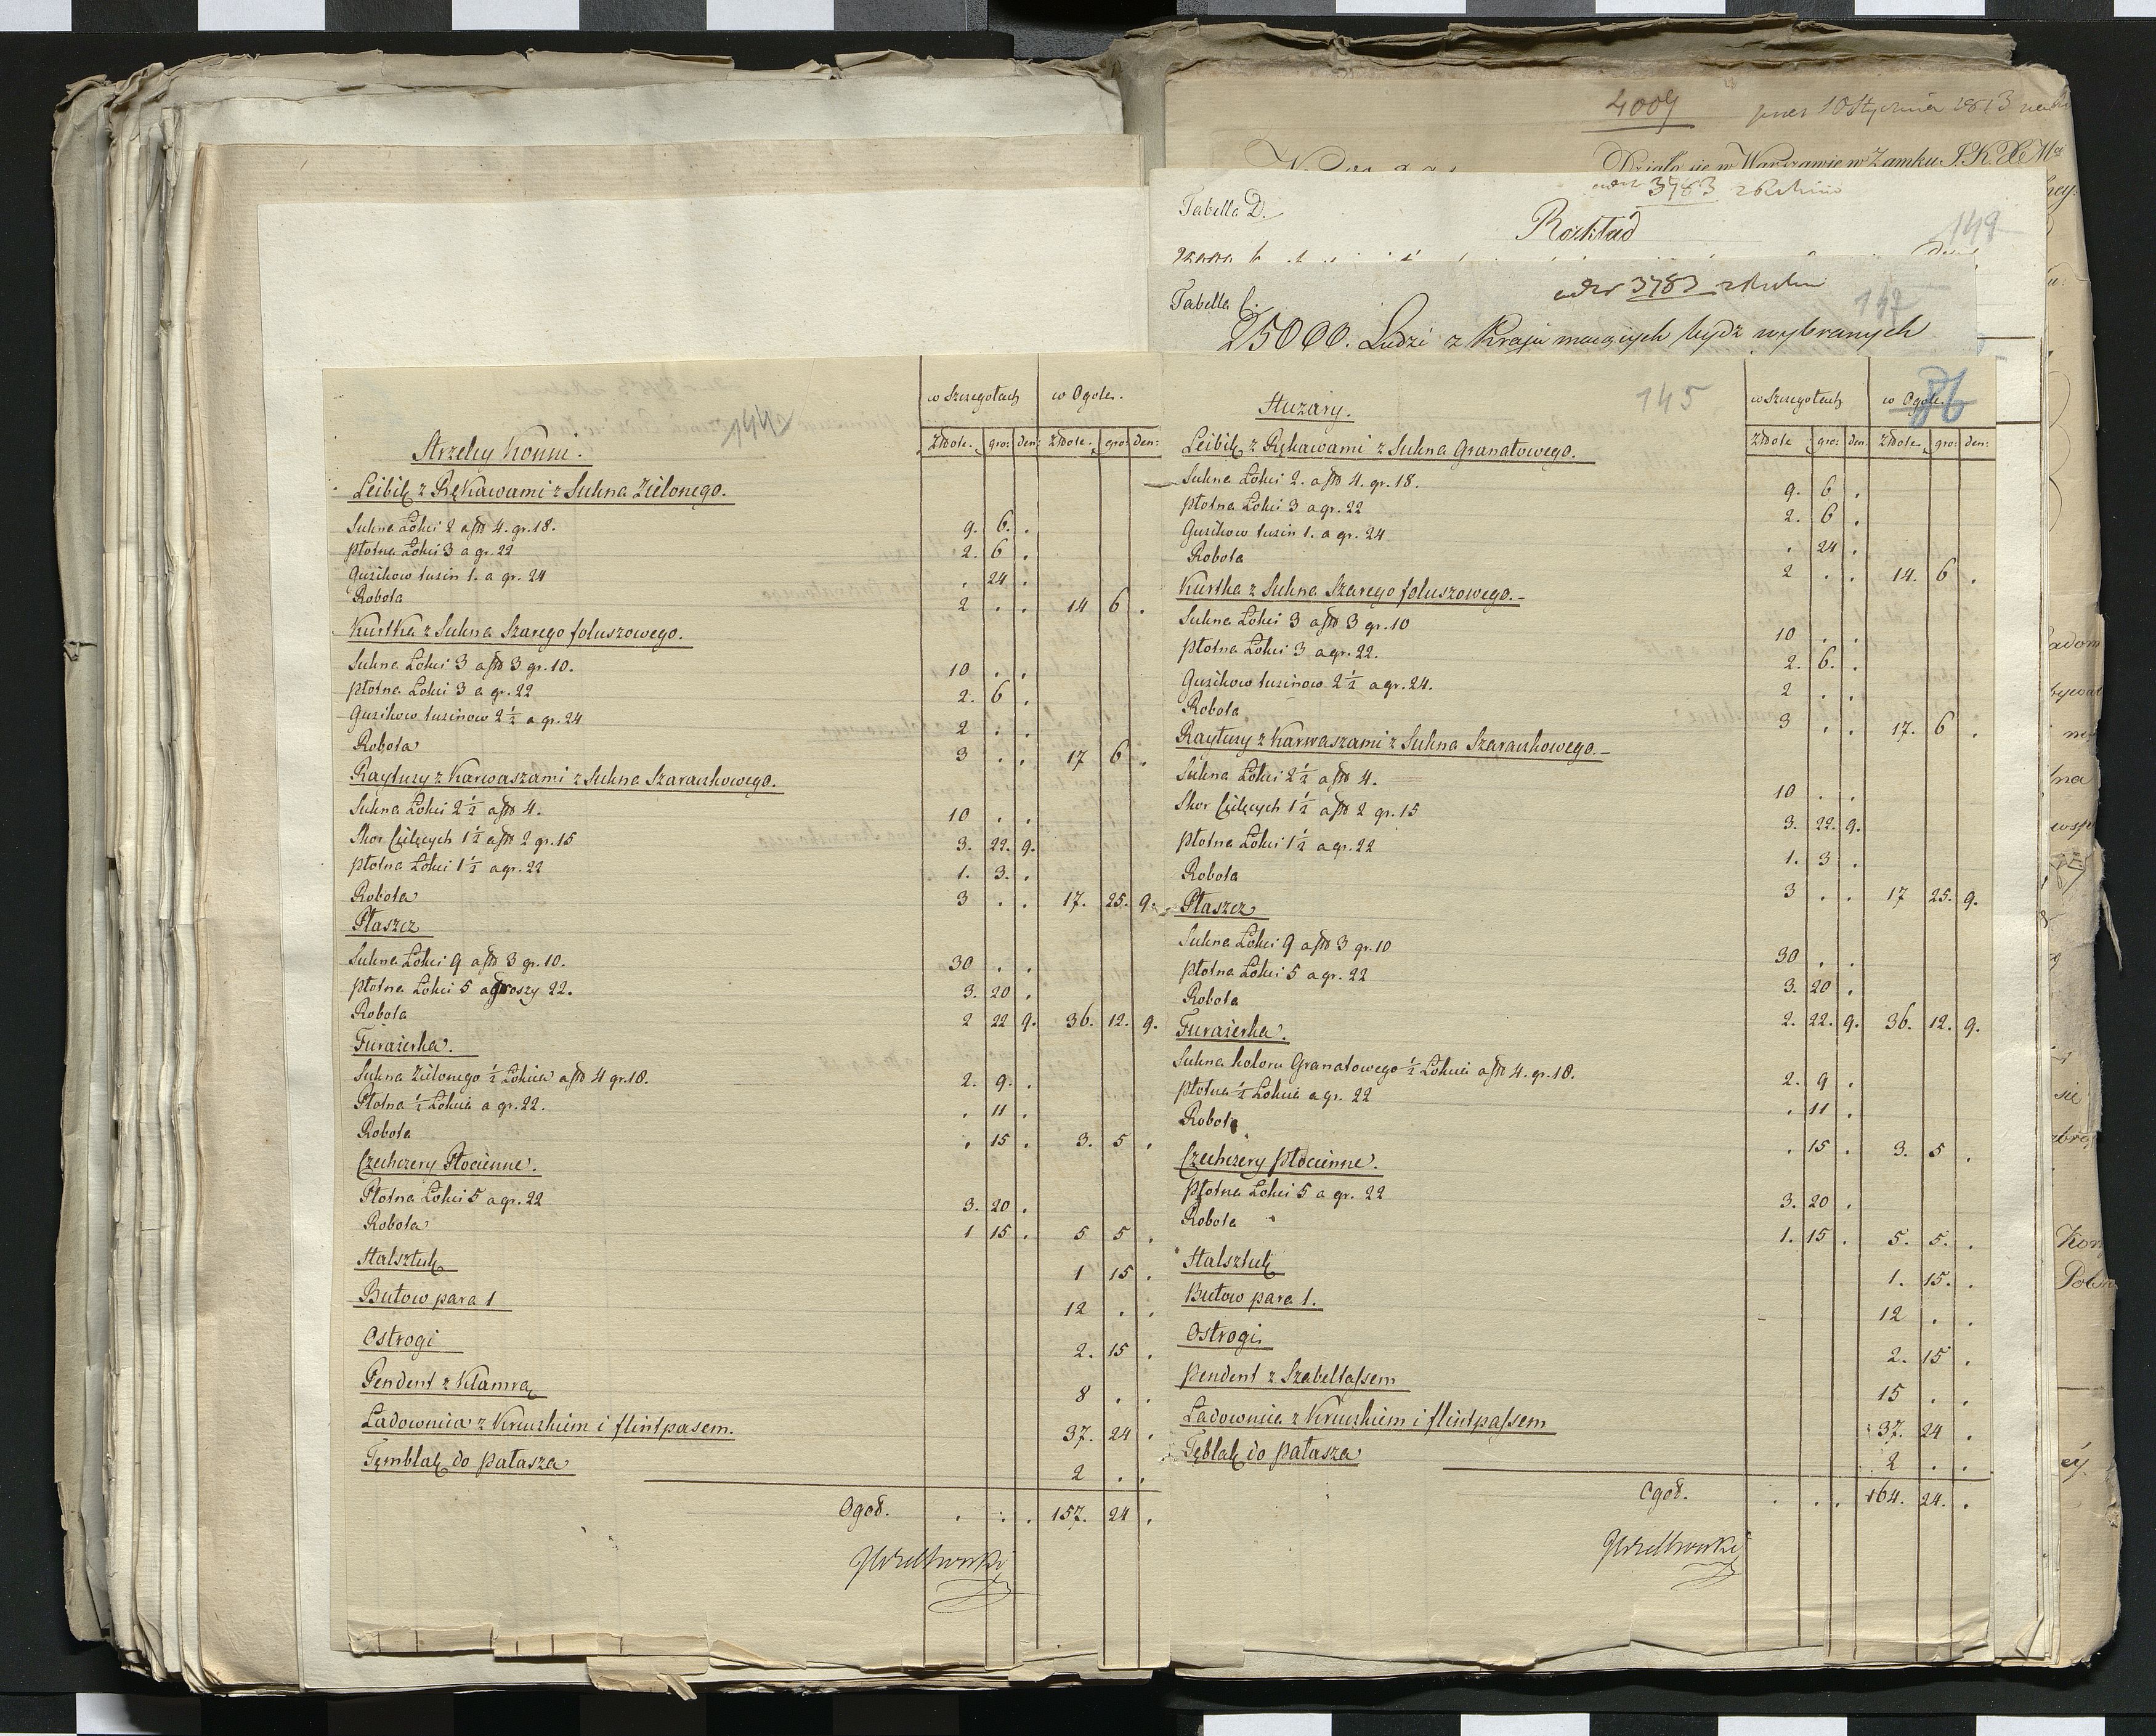 4009
Działo się w Warszawie w Zamku
Tabella D.
3783
Rozkład
149
Tabella C.
3783
147
25000. Ludzi z Kraju maiących bydź wybranych
144
w Szczegołach w Ogole.
Złote. gro: den: Złote. gro: den:
Strzelcy Konni.
Leibik z Rękawami z Sukna Zielonego.
Sukna Łokci 2 a fl 4. gr. 18. 9. 6. .
płotna Łokci 3 a gr. 22 2. 6 .
Guzikow tuzin 1. a gr. 24 . 24 .
Robota 2 . . 14 6 .
Kurtka z Sukna Szarego foluszowego.
Sukna Łokci 3 a fl 3 gr. 10. 10 . .
płotna Łokci 3 a gr. 22 2. 6 .
Guzikow tuzinow 2 1/2 a gr. 24 2 . .
Robota 3 . . 17 6 .
Raytuzy z Karwaszami z Sukna Szaraczkowego.
Sukna Łokci 2 1/2 a fl 4. 10 . .
Skor Cielęcych 1 1/2 a fl 2 gr. 15 3. 22. 9.
płotna Łokci 1 1/2 a gr. 22 1. 3. .
Robota 3 . . 17. 25. 9.
Płaszcz
Sukna Łokci 9 a fl 3 gr. 10. 30 . .
płotna Łokci 5 a groszy 22. 3. 20 .
Robota 2 22 9. 36. 12. 9.
Furażerka.
Sukna Zielonego 1/2 Łokcia a fl 4 gr. 18. 2. 9. .
Płotna 1/2 Łokcia a gr. 22. . 11 .
Robota . 15 . 3. 5 .
Czechczery Płocienne.
Płotna Łokci 5 a gr. 22 3. 20 .
Robota 1 15 . 5 5 .
Halsztuk 1 15 .
Butow para 1 12 . .
Ostrogi 2. 15 .
Pendent z Klamrą 8 . .
Ładownica z Kruczkiem i flintpasem. 37. 24 .
Tęmblak do pałasza 2 . .
Ogoł. . . . 157. 24 .
145
86
w Szczegołach w Ogole.
Złote gro: den. Złote gro: den:
Huzary.
Leibik z Rękawami z Sukna Granatowego.
Sukna Łokci 2. a fl 4. gr. 18. 9. 6 .
płotna Łokci 3 a gr. 22 2. 6 .
Guzikow tuzin 1. a gr. 24 . 24 .
Robota 2 . . 14. 6 .
Kurtka z Sukna Szarego foluszowego.
Sukna Łokci 3 a fl 3 gr. 10 10 . .
płotna Łokci 3 a gr. 22. 2. 6. .
Guzikow tuzinow 2 1/2 a gr. 24. 2 . .
Robota 3 . . 17. 6 .
Raytuzy z Karwaszami z Sukna Szaraczkowego.
Sukna Łokci 2 1/2 a fl 4. 10 . .
Skor Cielęcych 1 1/2 a fl 2 gr. 15 3. 22. 9.
płotna Łokci 1 1/2 a gr. 22 1. 3 .
Robota 3 . . 17 25. 9.
Płaszcz
Sukna Łokci 9 a fl 3 gr. 10 30 . .
płotna Łokci 5 a gr. 22 3. 20 .
Robota 2. 22. 9. 36. 12. 9.
Furażerka.
Sukna koloru Granatowego 1/2 Łokcia a fl 4. gr. 18. 2. 9 .
płotna 1/2 Łokcia a gr. 22 . 11 .
Robota . 15 . 3. 5 .
Czechczery płocienne.
płotna Łokci 5 a gr. 22 3. 20 .
Robota 1. 15 . 5. 5. .
Halsztuk 1. 15. .
Butow para 1. 12 . .
Ostrogi 2. 15 .
pendent z Szabeltassem 15 . .
Ładownica z Kruczkiem i flintpassem 37. 24 .
Tęblak do pałasza 2 . .
Ogoł. . . . 164. 24. .